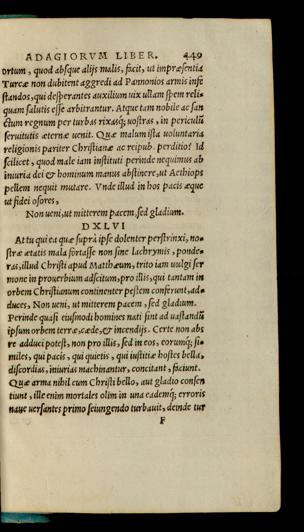 ADAGIORVM LIBER. 449
ortum, quod absque alijs malis, facit, ut impræsentia
Turcæ non dubitent aggredi ad Pannonios armis infe
standos, qui desperantes auxilium uix ullam spem reli-
quam salutis esse arbitrantur. Atque tam nobile ac san
ctum regnum per turbas rixasq; uostras, in periculũ
seruitutis æternæ uenit. Quæ malum ista uoluntaria
religionis pariter Christianæ ac reipub. perditio? Id
scilicet, quod male iam instituti perinde nequimus ab
iniuria dei & hominum manus abstinere, ut Aethiops
pellem nequit mutare. Vnde illud in hos pacis æque
ut fidei osores,
Non ueni, ut mitterem pacem, sed gladium.
DXLVI
At tu qui ea quæ suprà ipse dolenter perstrinxi, no-
stræ ætatis mala fortasse non sine lachrymis, ponde-
ras, illud Christi apud Matthæum, trito iam uulgi ser
mone in prouerbium adscitum, pro illis, qui tantam in
orbem Christianum continenter pestem conferunt, ad-
duces, Non ueni, ut mitterem pacem, sed gladium.
Perinde quasi eiusmodi homines nati sint ad uastandũ
ipsum orbem terræ, cæde, & incendijs. Certe non abs
re adduci potest, non pro illis, sed in eos, eorumq; si-
miles, qui pacis, qui quietis, qui iustitiæ hostes bella,
discordias, iniurias machinantur, concitant, faciunt.
Quæ arma nihil cum Christi bello, aut gladio consen
tiunt, ille enim mortales olim in una eademq; erroris
naue uersantes primo seiungendo turbauit, deinde tur
F